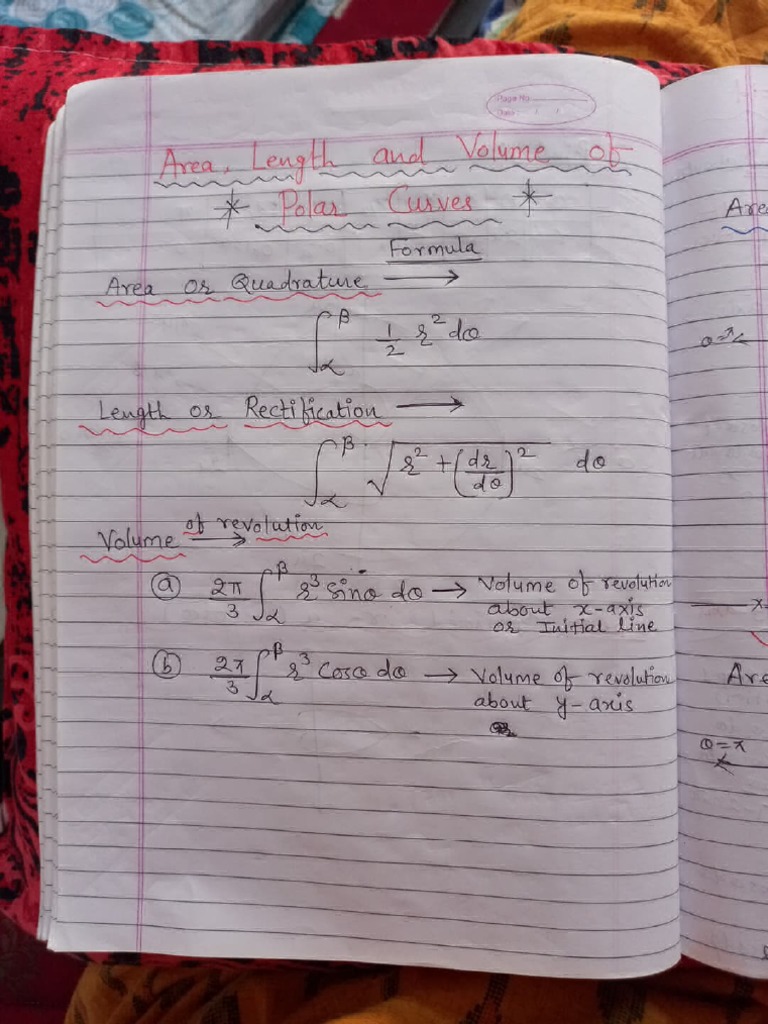 Page No.
Date: / /
Area, Length and Volume of
* Polar Curves *
Formula
Area or Quadrature →
∫_α^β 1/2 r² dθ
Length or Rectification →
∫_α^β √(r² + (dr/dθ)²) dθ
of revolution
Volume →
ⓐ 2π/3 ∫_α^β r³ sinθ dθ → Volume of revolution
about x-axis
or Initial line
ⓑ 2π/3 ∫_α^β r³ Cosθ dθ → Volume of revolution
about y-axis
Are
x
Are
θ=π